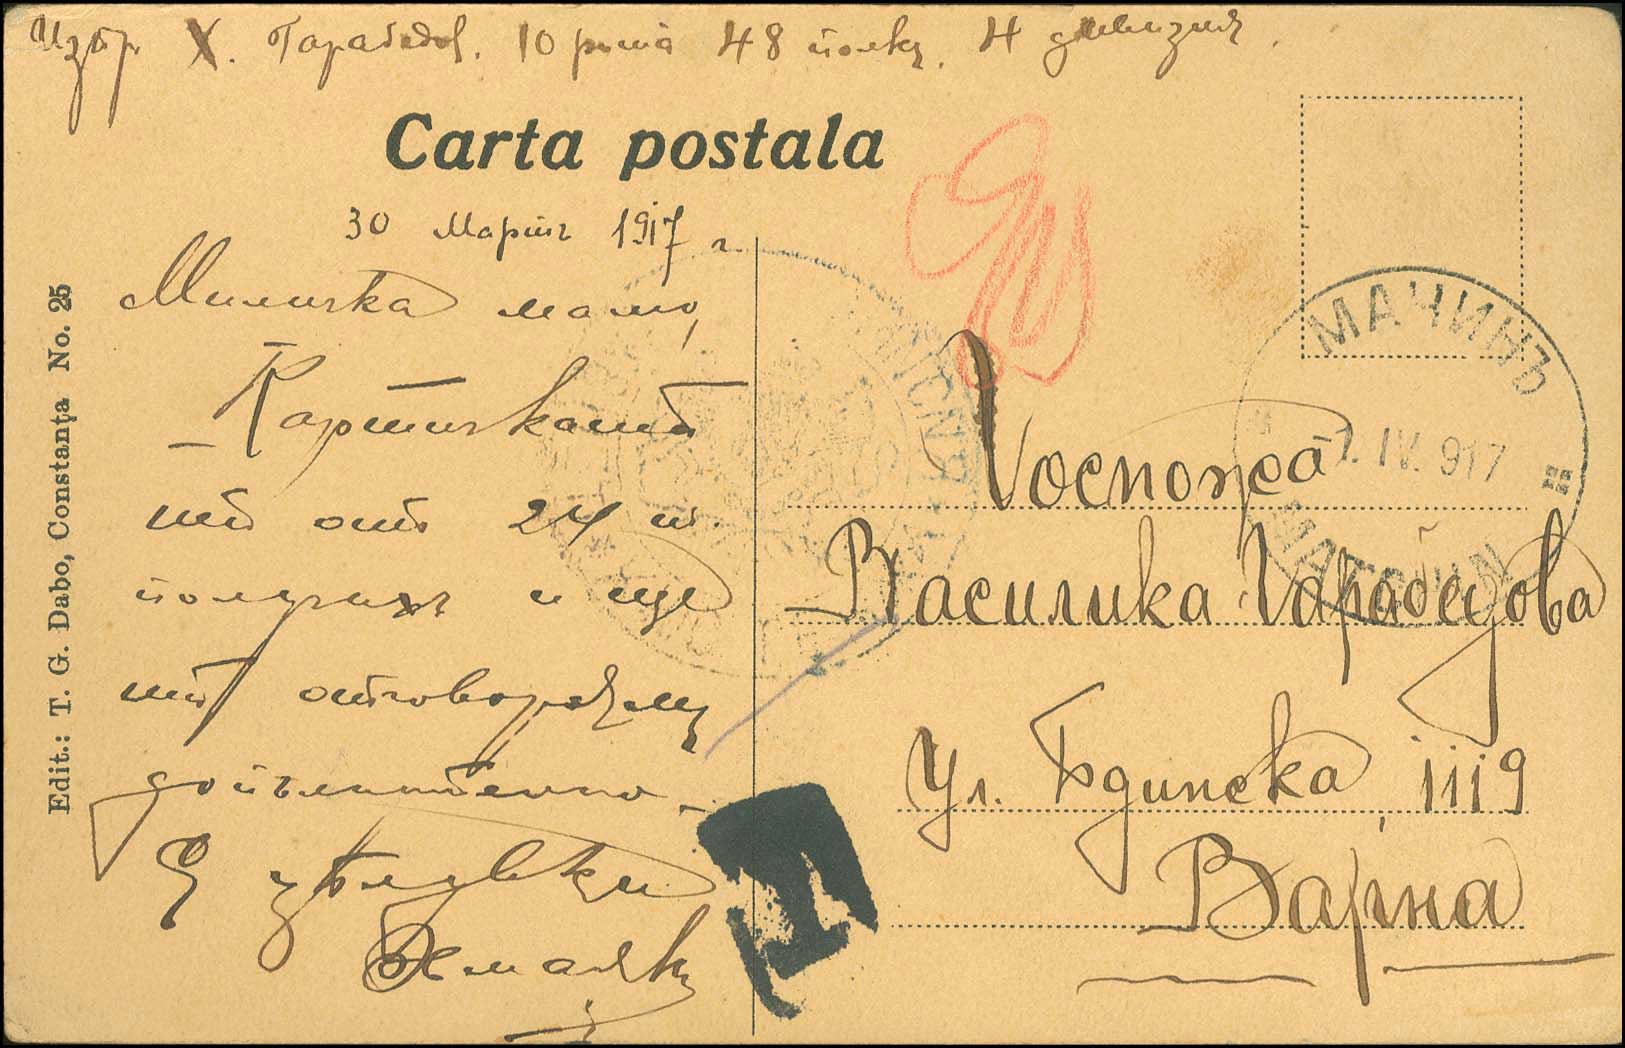 Изпр. Х. Гарабедов. 10 рота 48 полкъ. 4 дивизия.
Carta postala
30 Мартъ 1917 г.
Миличка мамо,
Картичката
ти отъ 24 т.
получихъ и ще
ти отговоря
допълнително.
Цѣлувки
Госпожа
Василика Гарабедова
Ул. Бдинска 1119
Варна
Edit.: T. G. Dabo, Constanța No. 25
МАЧИНЪ
1. IV. 917
MATCHIN
T